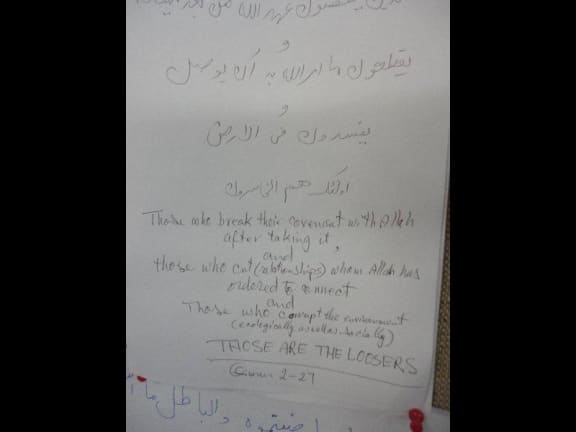 الذين ينقضون عهد الله من بعد ميثاقه
و
يقطعون ما امر الله به ان يوصل
و
يفسدون فى الارض
اولئك هم الخاسرون
Those who break their covenant with Allah
after taking it,
and
those who cut (relationships) whom Allah has
ordered to connect
and
Those who corrupt the environment
(ecologically as well as socially)
THOSE ARE THE LOOSERS
2-27
والباطل ما